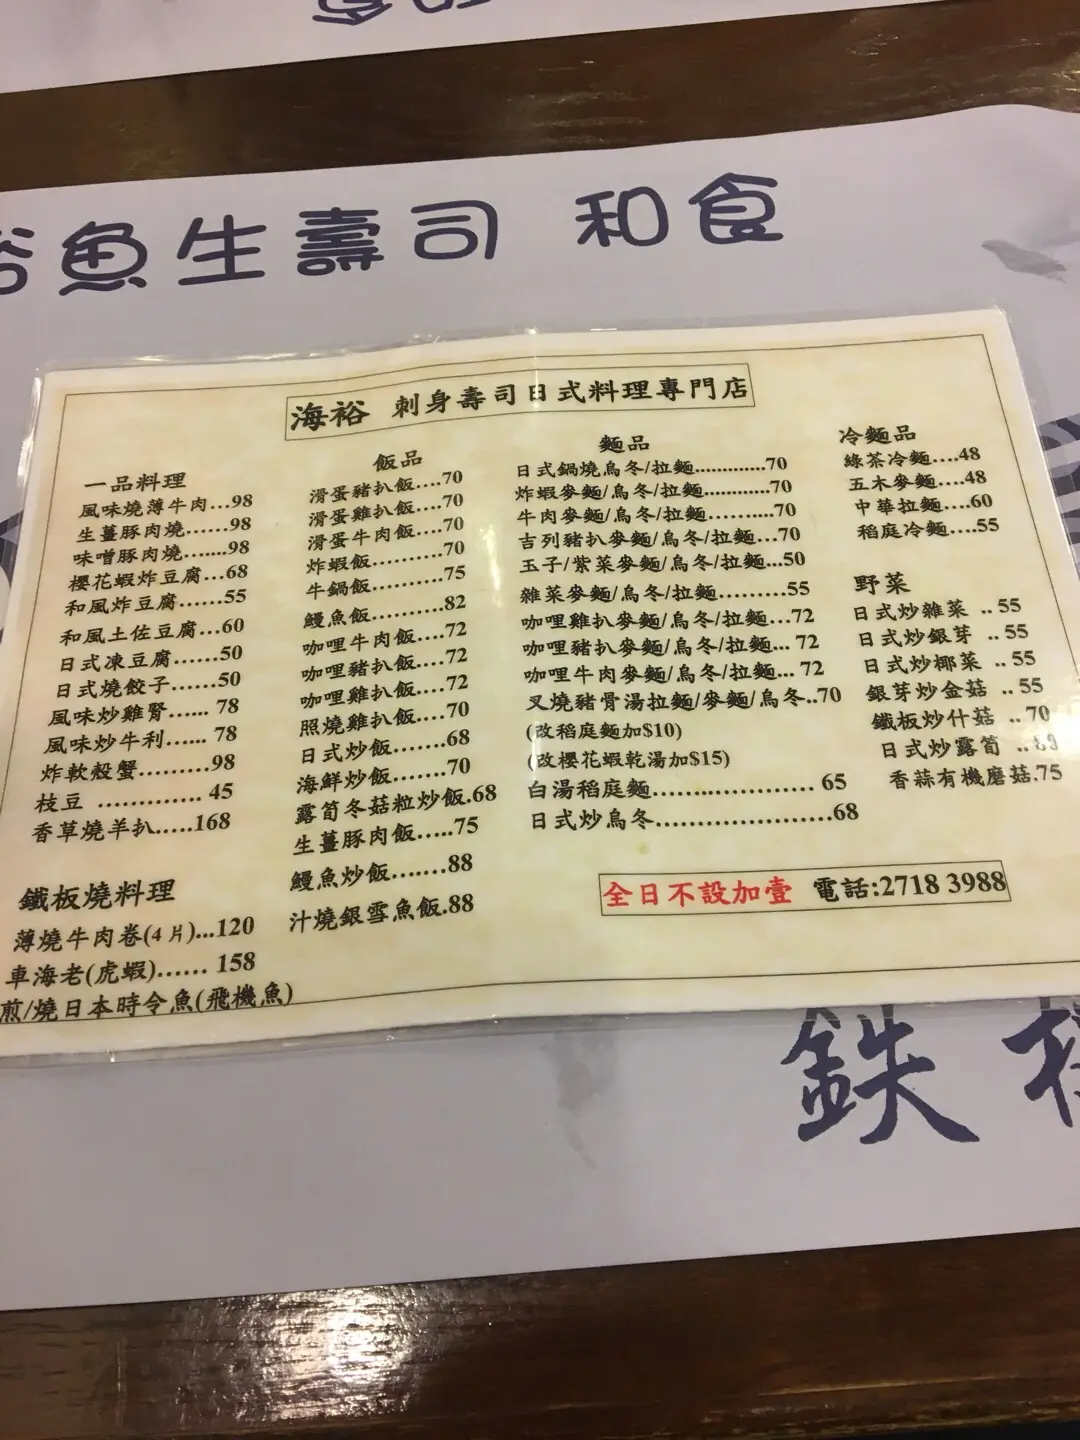 魚生壽司 和食
海裕 刺身壽司日式料理專門店
一品料理
風味燒薄牛肉...98
生薑豚肉燒......98
味噌豚肉燒.......98
櫻花蝦炸豆腐...68
和風炸豆腐......55
和風土佐豆腐...60
日式凍豆腐......50
日式燒餃子......50
風味炒雞腎...... 78
風味炒牛利...... 78
炸軟殼蟹.........98
枝豆 ............. 45
香草燒羊扒.....168
鐵板燒料理
薄燒牛肉卷(4 片)...120
車海老(虎蝦)...... 158
煎/燒日本時令魚(飛機魚)
飯品
滑蛋豬扒飯....70
滑蛋雞扒飯....70
滑蛋牛肉飯....70
炸蝦飯.........70
牛鍋飯.........75
鰻魚飯.........82
咖哩牛肉飯....72
咖哩豬扒飯....72
咖哩雞扒飯....72
照燒雞扒飯....70
日式炒飯.......68
海鮮炒飯.......70
露筍冬菇粒炒飯.68
生薑豚肉飯.....75
鰻魚炒飯.......88
汁燒銀雪魚飯.88
麵品
日式鍋燒烏冬/拉麵.............70
炸蝦麥麵/烏冬/拉麵............70
牛肉麥麵/烏冬/拉麵...........70
吉列豬扒麥麵/烏冬/拉麵...70
玉子/紫菜麥麵/烏冬/拉麵...50
雜菜麥麵/烏冬/拉麵..........55
咖哩雞扒麥麵/烏冬/拉麵...72
咖哩豬扒麥麵/烏冬/拉麵... 72
咖哩牛肉麥麵/烏冬/拉麵... 72
叉燒豬骨湯拉麵/麥麵/烏冬..70
(改稻庭麵加$10)
(改櫻花蝦乾湯加$15)
白湯稻庭麵..................... 65
日式炒烏冬......................68
冷麵品
綠茶冷麵....48
五木麥麵....48
中華拉麵....60
稻庭冷麵....55
野菜
日式炒雜菜 .. 55
日式炒銀芽 .. 55
日式炒椰菜 .. 55
銀芽炒金菇 .. 55
鐵板炒什菇 .. 70
日式炒露筍 ..
香蒜有機磨菇.75
全日不設加壹 電話:2718 3988
鉄